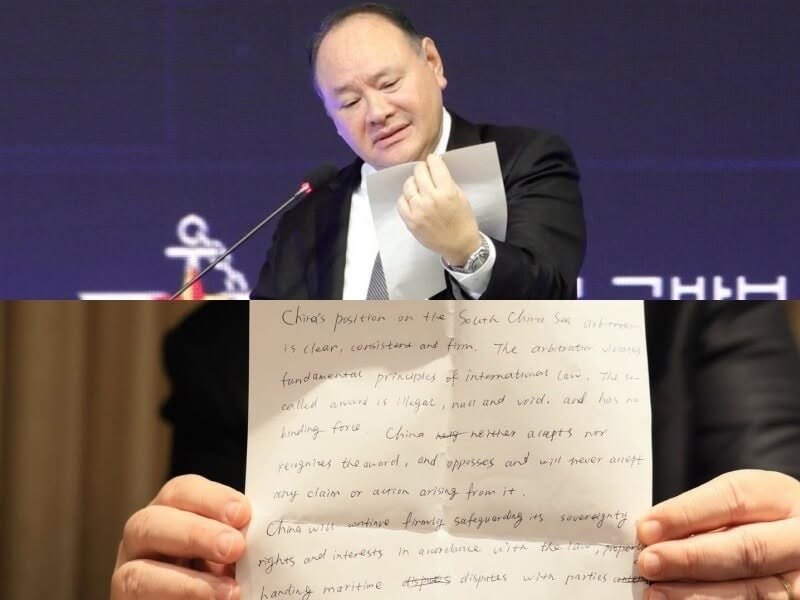 China's position on the South China Sea arbitration
is clear, consistent and firm. The arbitration violates
fundamental principles of international law. The so-
called award is illegal, null and void, and has no
binding force China neither accepts nor
recognizes the award, and oppsses and will never accept
any claim or action arising from it.
China will continue firmly safeguarding its sovereignty,
rights and interests in accordance with the law, properly
handing maritime disputes with parties